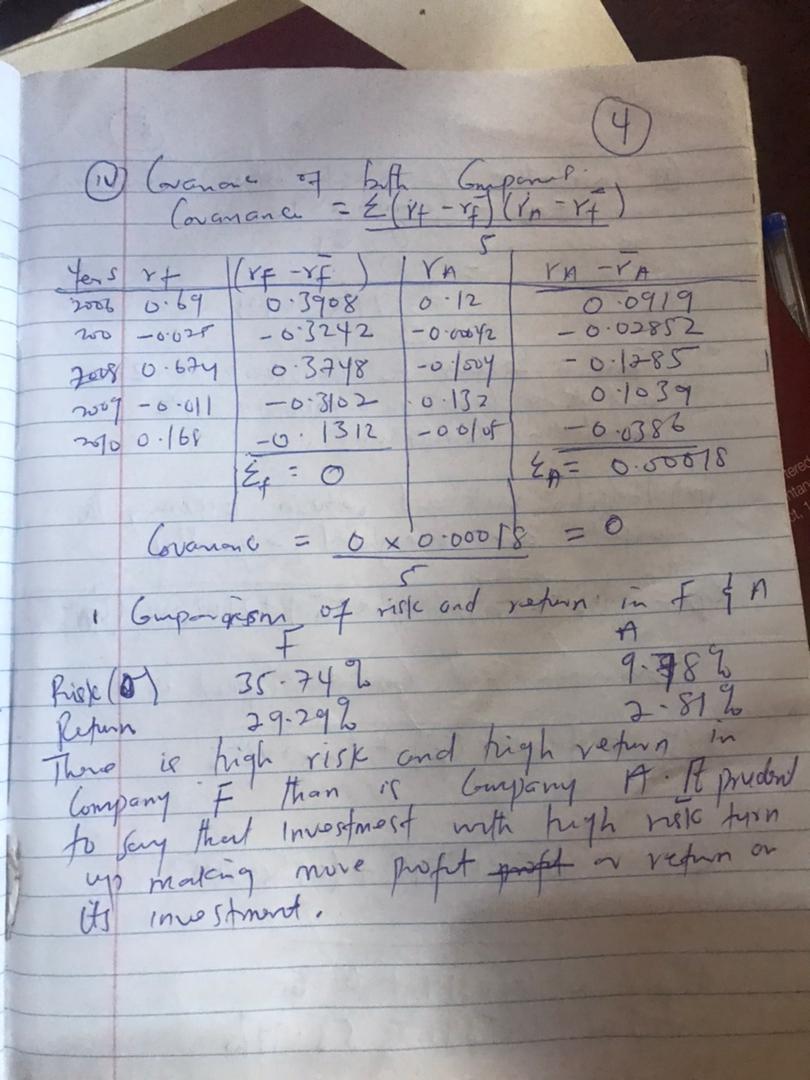 4
(iv) Covariance of both Companies.
Covariance = Σ(rf - r̄f)(rA - r̄f)
5
Years rf (rF - r̄f) rA rA - r̄A
2006 0.69 0.3908 0.12 0.0919
200 -0.025 -0.3242 -0.00042 -0.02852
2008 0.674 0.3748 -0.1004 -0.1285
2009 -0.011 -0.3102 0.132 0.1039
2010 0.168 -0.1312 -0.0105 -0.0386
Σf = 0 ΣA = 0.00018
Covariance = 0 x 0.00018 = 0
5
1 Comparison of risk and return in F & A
F A
Risk (σ) 35.74% 9.38%
Return 29.29% 2.81%
There is high risk and high return in
Company F than is Company A. It prudent
to say that investment with high risk turn
up making more profit profit or return on
its investment.